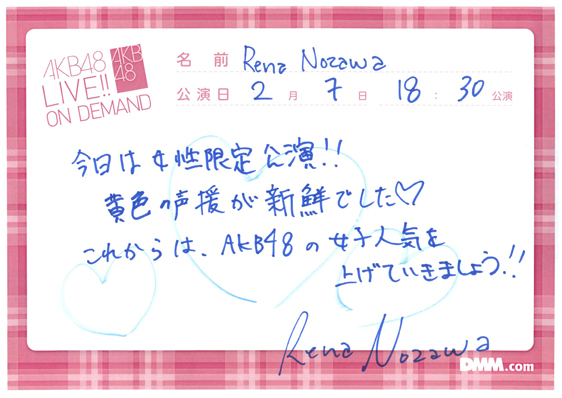 AKB48
LIVE!!
ON DEMAND
AKB
48
名前 Rena Nozawa
公演日 2月7日 18:30公演
今日は女性限定公演!!
黄色の声援が新鮮でした♡
これからは、AKB48の女子人気を
上げていきましょう!!
Rena Nozawa
DMM.com